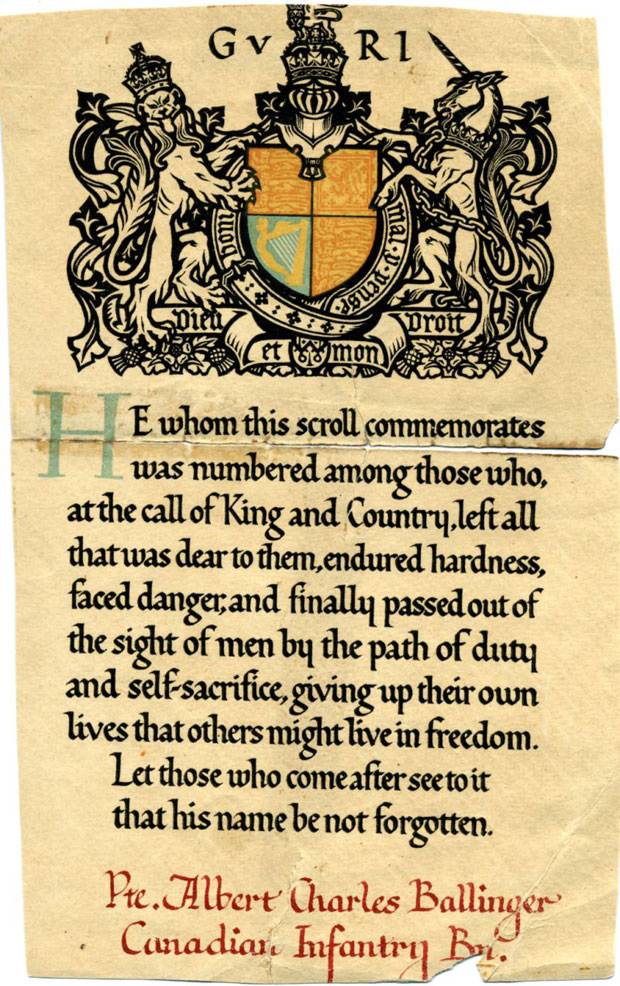 G V R I
mal · y · pense
Dieu Droit
et mon
HE whom this scroll commemorates
was numbered among those who,
at the call of King and Country, left all
that was dear to them, endured hardness,
faced danger, and finally passed out of
the sight of men by the path of duty
and self-sacrifice, giving up their own
lives that others might live in freedom.
Let those who come after see to it
that his name be not forgotten.
Pte. Albert Charles Ballinger
Canadian Infantry Bn.